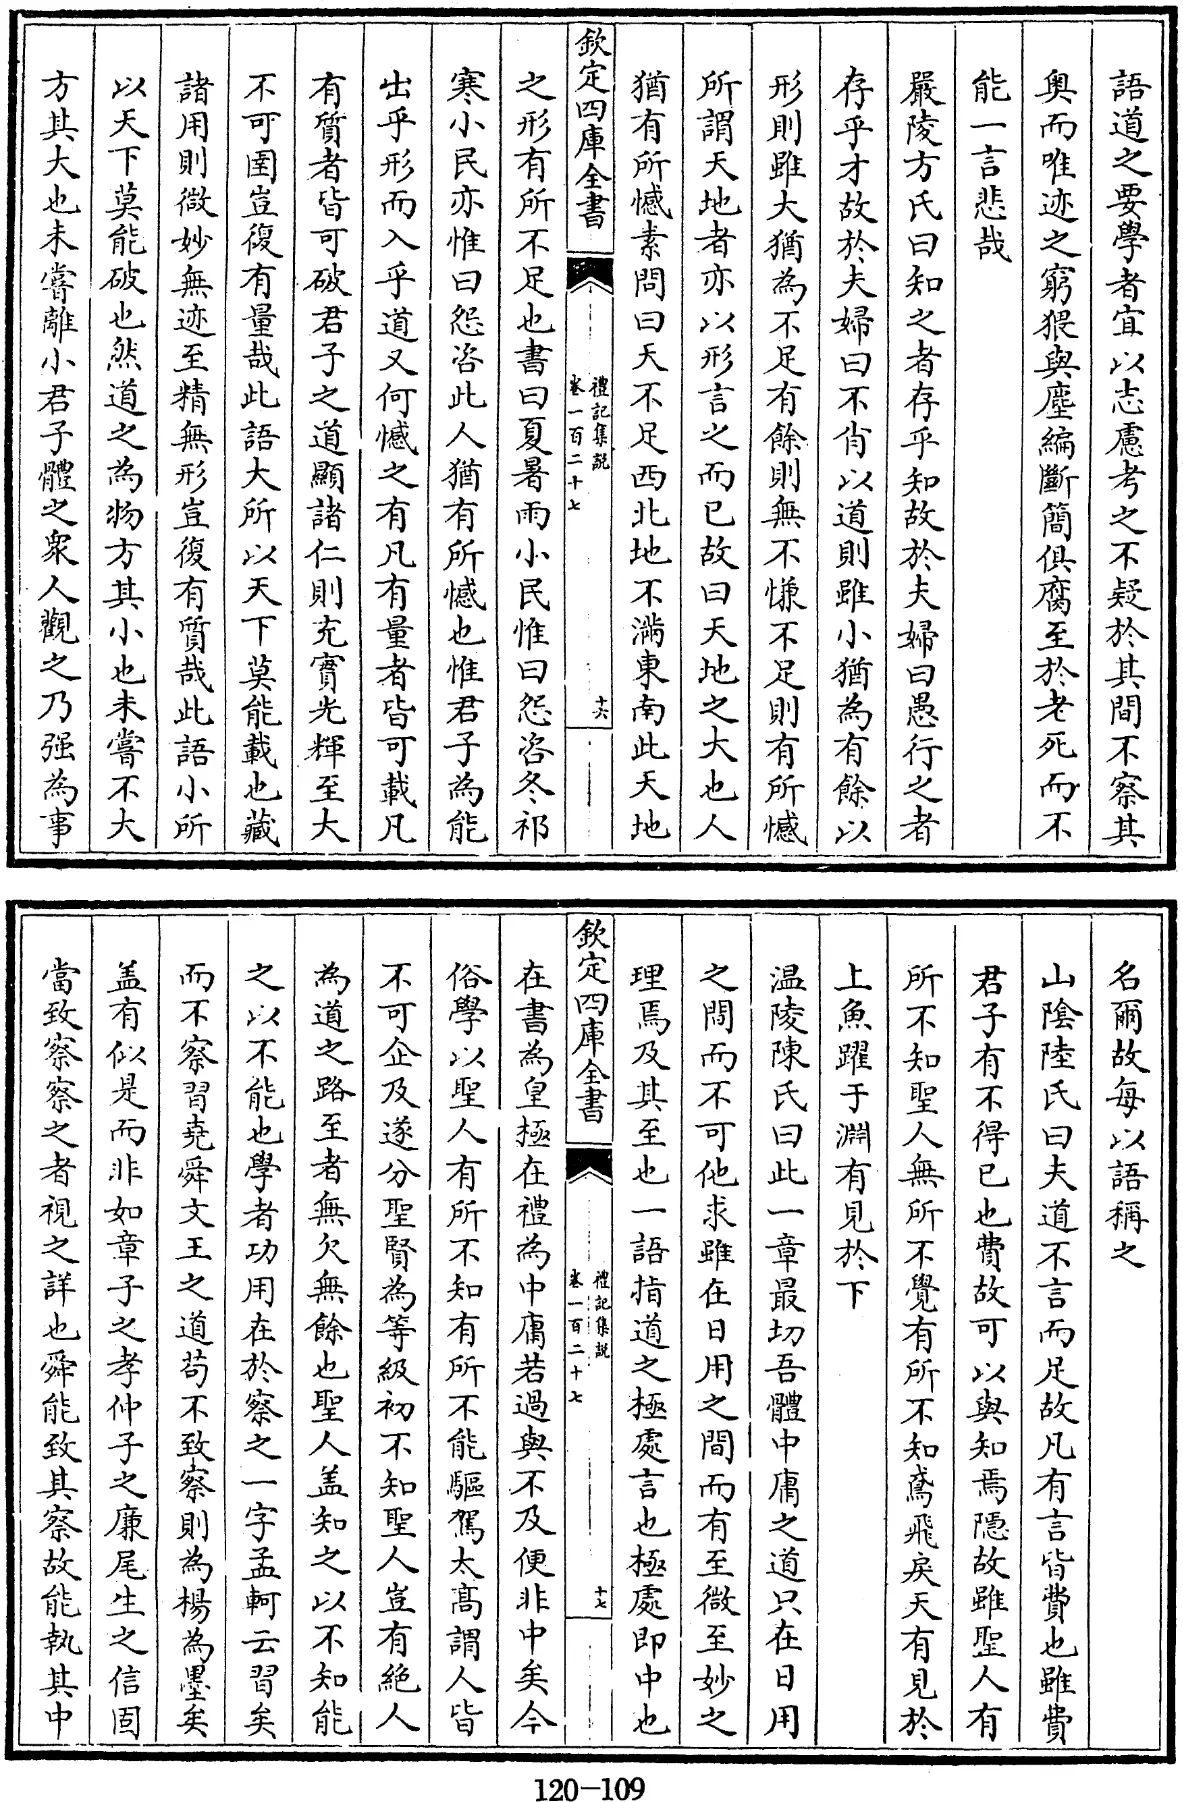 語道之要學者宜以志慮考之不疑於其間不察其
奥而唯迹之窮猥與塵編斷簡俱腐至於老死而不
能一言悲哉
嚴陵方氏曰知之者存乎知故於夫婦曰愚行之者
存乎才故於夫婦曰不肖以道則雖小猶為有餘以
形則雖大猶為不足有餘則無不慊不足則有所憾
所謂天地者亦以形言之而已故曰天地之大也人
猶有所憾素問曰天不足西北地不滿東南此天地
欽定四庫全書
禮記集説
卷一百二十七
十六
之形有所不足也書曰夏暑雨小民惟曰怨咨冬祁
寒小民亦惟曰怨咨此人猶有所憾也惟君子為能
出乎形而入乎道又何憾之有凡有量者皆可載凡
有質者皆可破君子之道顯諸仁則充實光輝至大
不可圉豈復有量哉此語大所以天下莫能載也藏
諸用則微妙無迹至精無形豈復有質哉此語小所
以天下莫能破也然道之為物方其小也未嘗不大
方其大也未嘗離小君子體之衆人觀之乃强為事
名爾故每以語稱之
山陰陸氏曰夫道不言而足故凡有言皆費也雖費
君子有不得已也費故可以與知焉隱故雖聖人有
所不知聖人無所不覺有所不知鳶飛戾天有見於
上魚躍于淵有見於下
温陵陳氏曰此一章最切吾體中庸之道只在日用
之間而不可他求雖在日用之間而有至微至妙之
理焉及其至也一語指道之極處言也極處即中也
欽定四庫全書
禮記集説
卷一百二十七
十七
在書為皇極在禮為中庸若過與不及便非中矣今
俗學以聖人有所不知有所不能驅駕太髙謂人皆
不可企及遂分聖賢為等級初不知聖人豈有絶人
為道之路至者無欠無餘也聖人盖知之以不知能
之以不能也學者功用在於察之一字孟軻云習矣
而不察習堯舜文王之道苟不致察則為楊為墨矣
盖有似是而非如章子之孝仲子之廉尾生之信固
當致察察之者視之詳也舜能致其察故能執其中
120-109